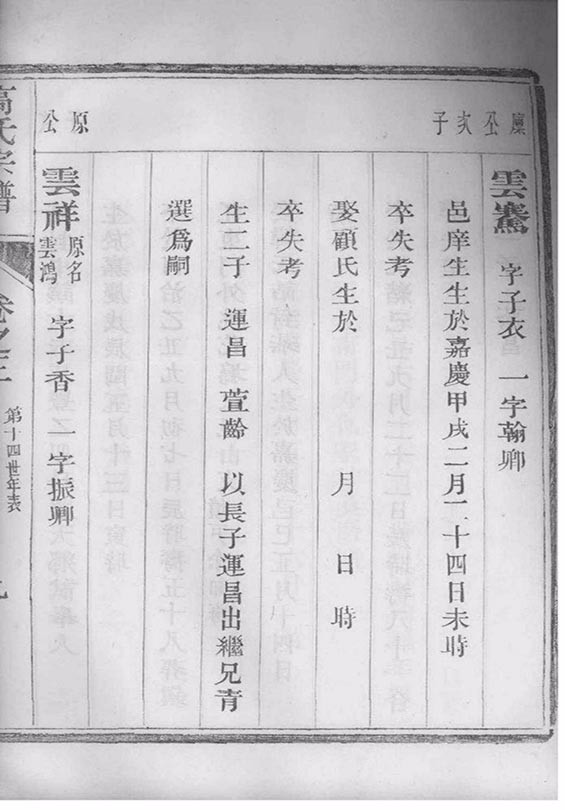 公次子
雲騫 字子衣 一字翰卿
邑庠生生於嘉慶甲戌二月二十四日未時
卒失考
娶顧氏生於 月 日 時
卒失考
生二子 運昌 萱齡 以長子運昌出繼兄青
選爲嗣
原公
雲祥 原名雲鴻 字子香 一字振卿
高氏宗譜
卷之
第十四世年表